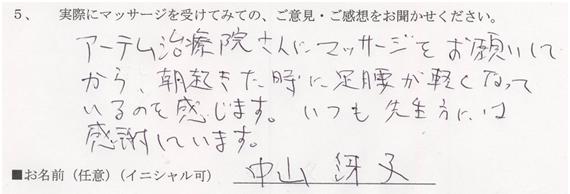 5、 実際にマッサージを受けてみての、ご意見・ご感想をお聞かせください。
アーテム治療院さんにマッサージをお願いして
から、朝起きた時に足腰が軽くなって
いるのを感じます。いつも先生方には
感謝しています。
■お名前（任意）（イニシャル可） 中山 冴子